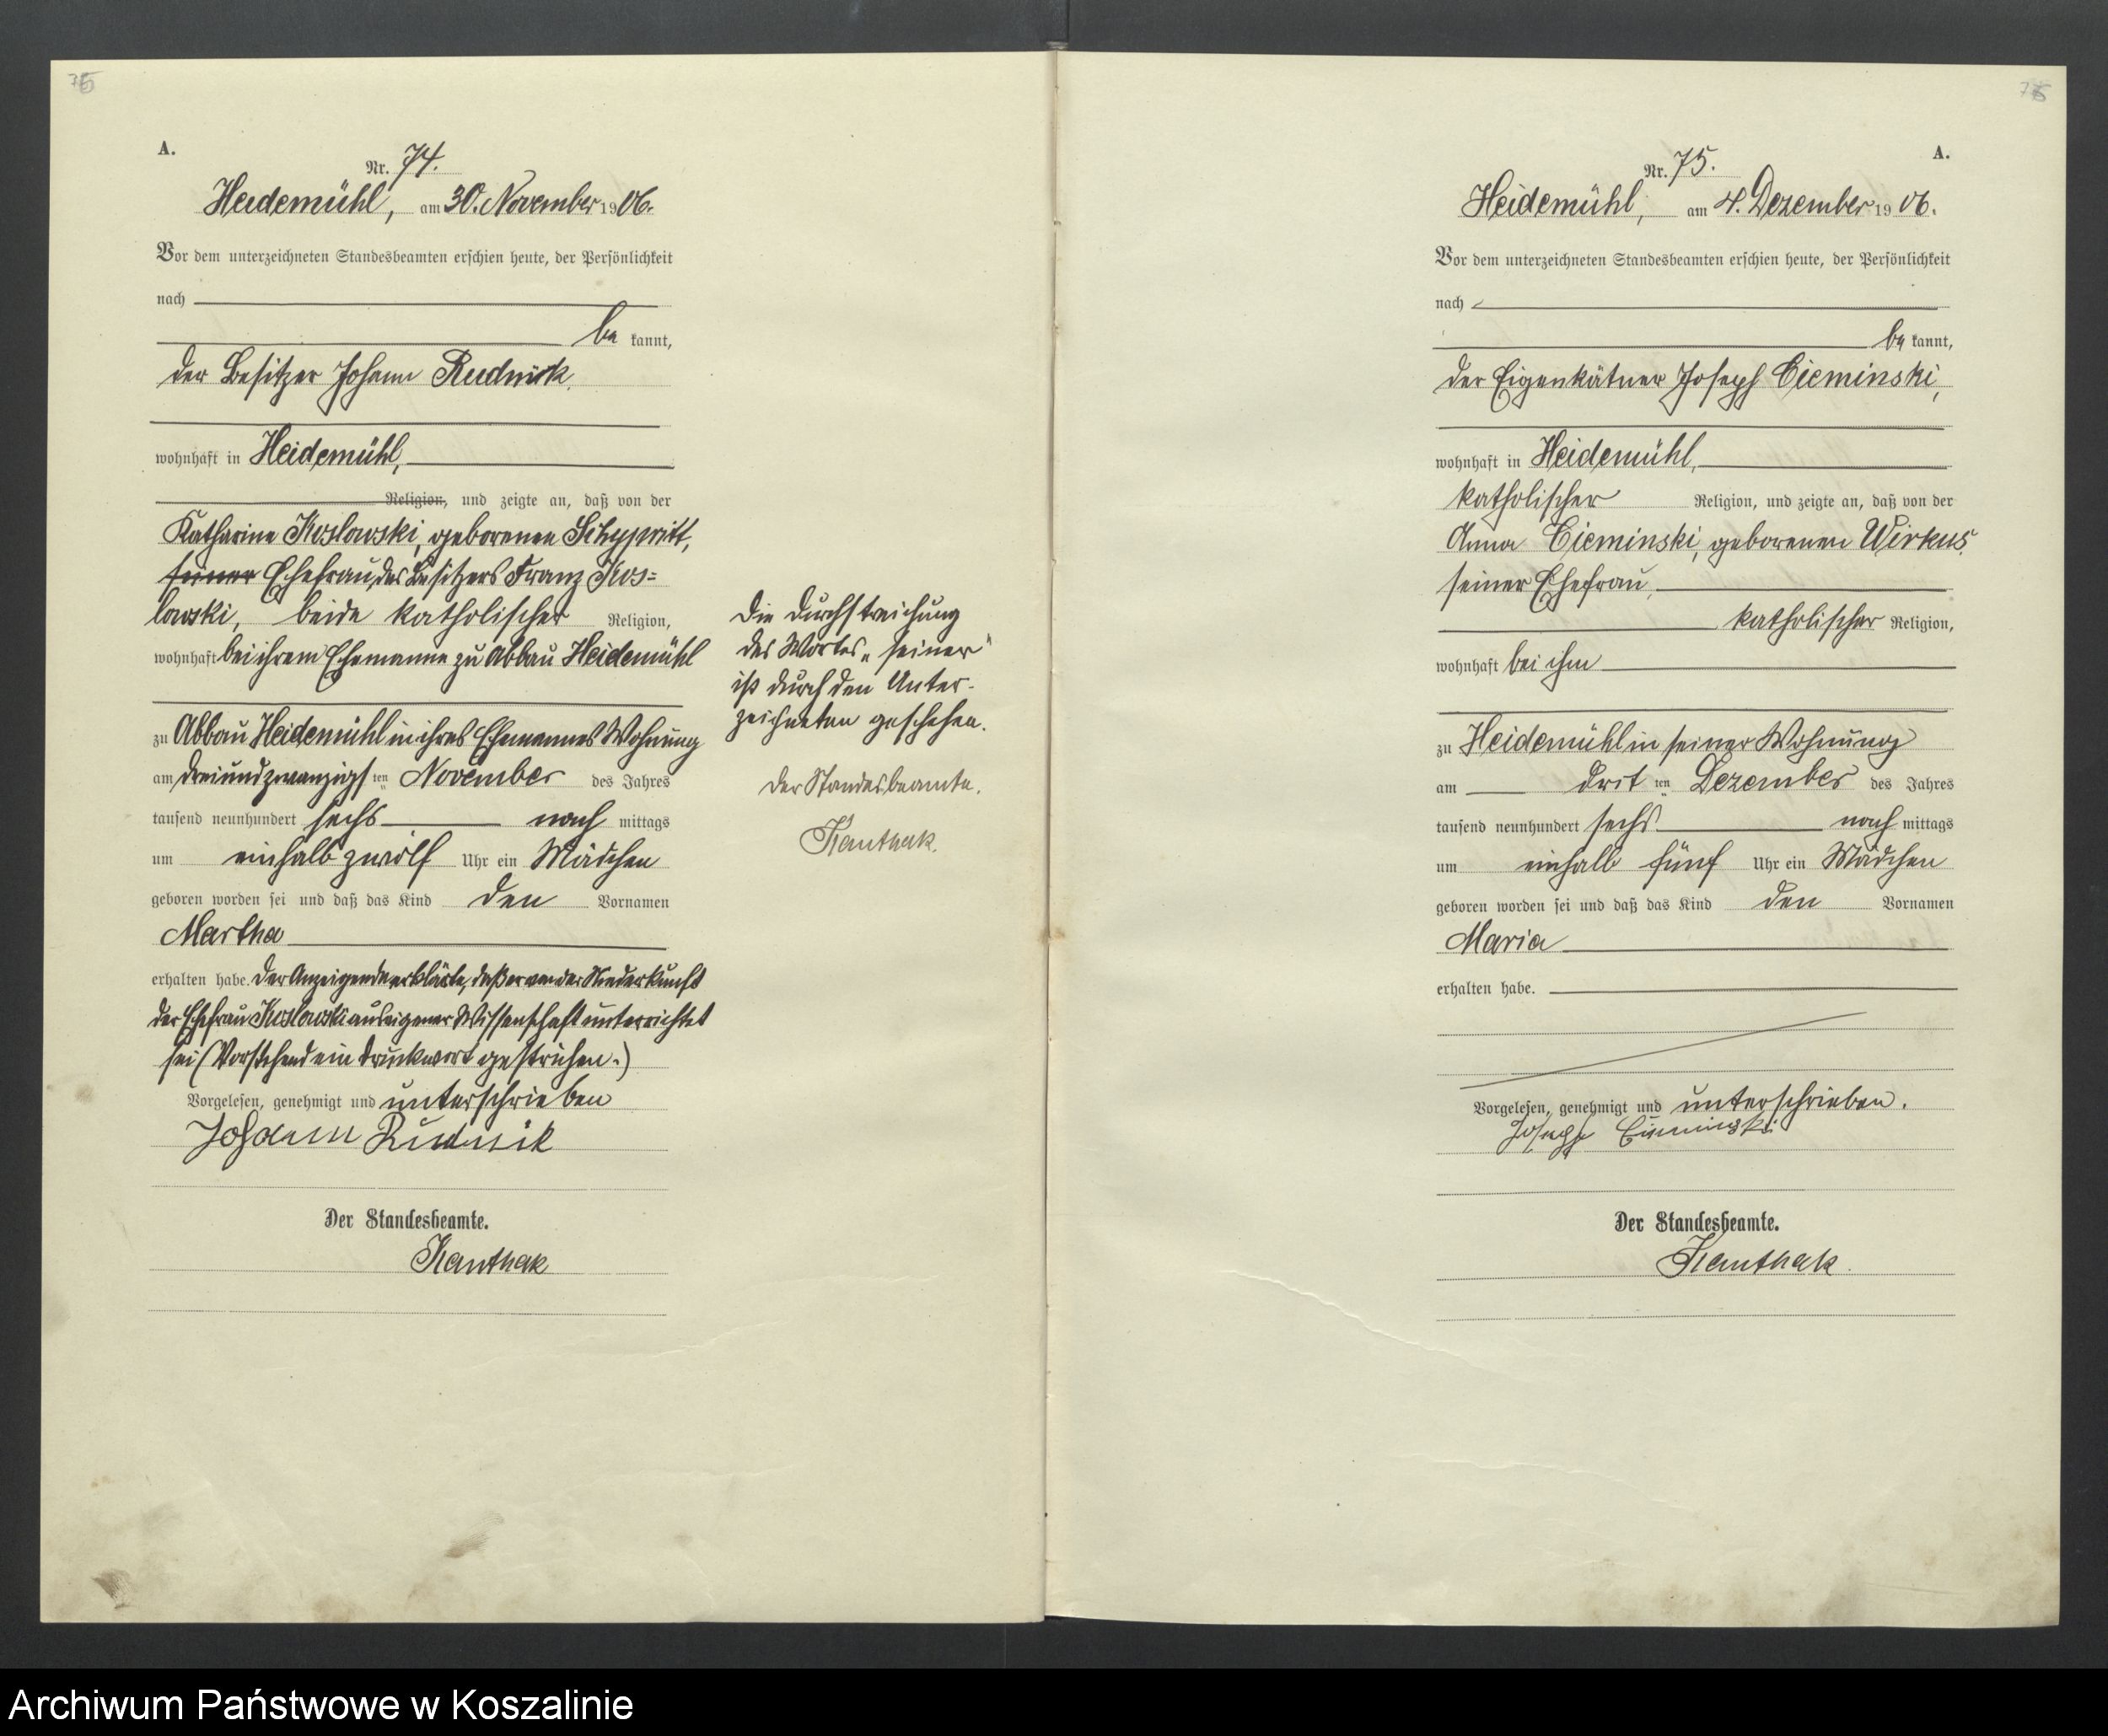 A.
Nr. 74.
Heidemühl, am 30. November 1906.
Vor dem unterzeichneten Standesbeamten erschien heute, der Persönlichkeit
nach
be kannt,
der Besitzer Johann Rudnick
wohnhaft in Heidemühl,
Religion, und zeigte an, daß von der
Katharine Koslowski, geborenen
seiner Ehefrau, des Besitzers Franz Kos=
lowski, beide katholischer Religion,
wohnhaft bei ihrem Ehemanne zu Abbau Heidemühl
zu Abbau Heidemühl in ihres Ehemannes Wohnung
am dreiundzwanzigsten November des Jahres
tausend neunhundert sechs nach mittags
um einhalb zwölf Uhr ein Mädchen
geboren worden sei und daß das Kind den Vornamen
Martha
erhalten habe. Der Anzeigende erklärte, daß er von der Niederkunft
der Ehefrau Koslowski aus eigener Wissenschaft unterrichtet
sei (Vorstehend ein Druckwort gestrichen.)
Vorgelesen, genehmigt und unterschrieben
Johann Rudnik
Der Standesbeamte.
Kanthak
Die Durchstreichung
des Wortes „seiner"
ist durch den Unter-
zeichneten geschehen.
Der Standesbeamte.
Kanthak.
A.
Nr. 75.
Heidemühl, am 4. Dezember 1906.
Vor dem unterzeichneten Standesbeamten erschien heute, der Persönlichkeit
nach
be kannt,
der Eigenkätner Joseph Cieminski,
wohnhaft in Heidemühl,
katholischer Religion, und zeigte an, daß von der
Anna Cieminski, geborenen Wirkus,
seiner Ehefrau,
katholischer Religion,
wohnhaft bei ihm
zu Heidemühl in seiner Wohnung
am dritten Dezember des Jahres
tausend neunhundert sechs nach mittags
um einhalb fünf Uhr ein Mädchen
geboren worden sei und daß das Kind den Vornamen
Maria
erhalten habe.
Vorgelesen, genehmigt und unterschrieben.
Joseph Cieminski
Der Standesbeamte.
Kanthak.
Archiwum Państwowe w Koszalinie